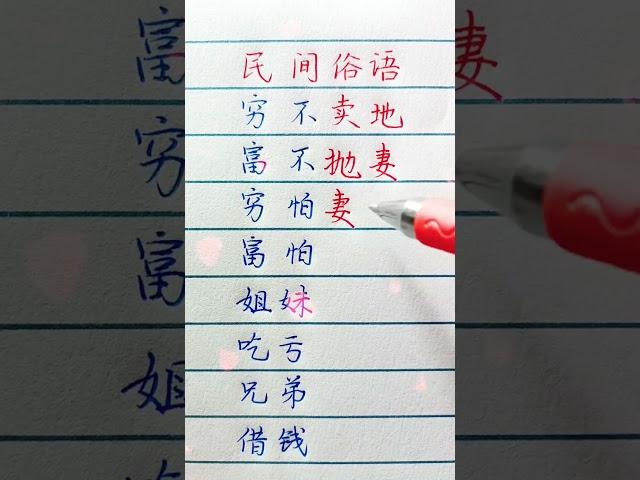 民间俗语
穷不卖地
富不抛妻
穷怕妻
富怕
姐妹
吃亏
兄弟
借钱
富
穷
富
姐
吃
妻